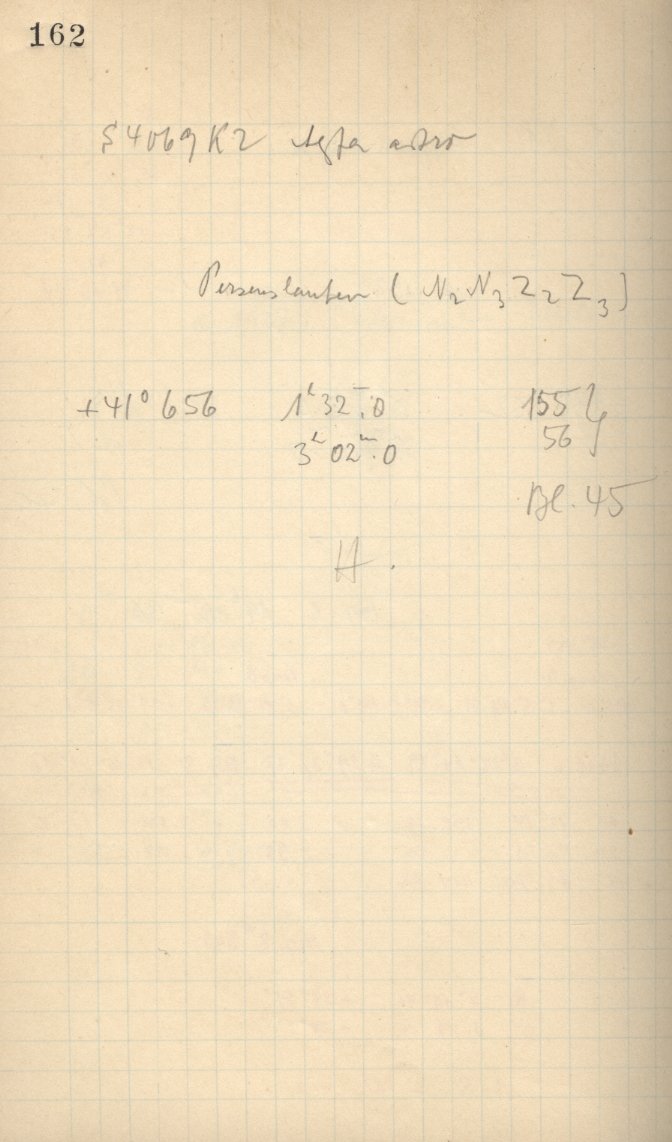 162
S4069K2 Agfa astro
Perseushaufen (N₂N₃Z₂Z₃)
+41° 656 1ʰ32ᵐ.0 155
3ʰ02ᵐ.0 56
Bl. 45
H.